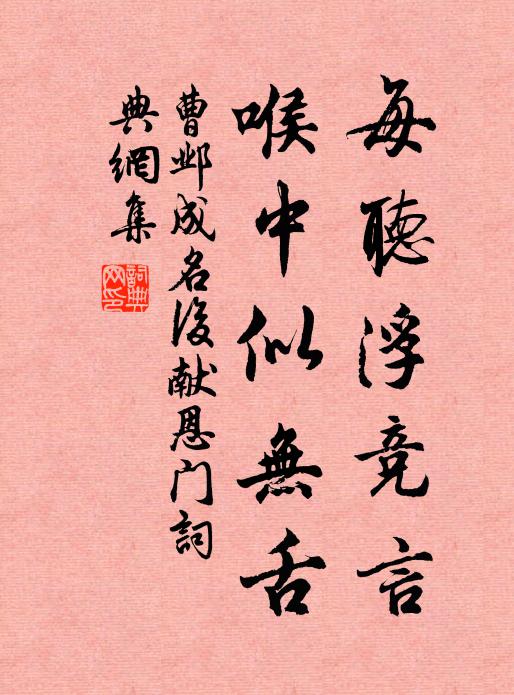 每聽浮竞言
喉中似無舌
曹邺成名後献恩门詞
典網集
詞典
网印